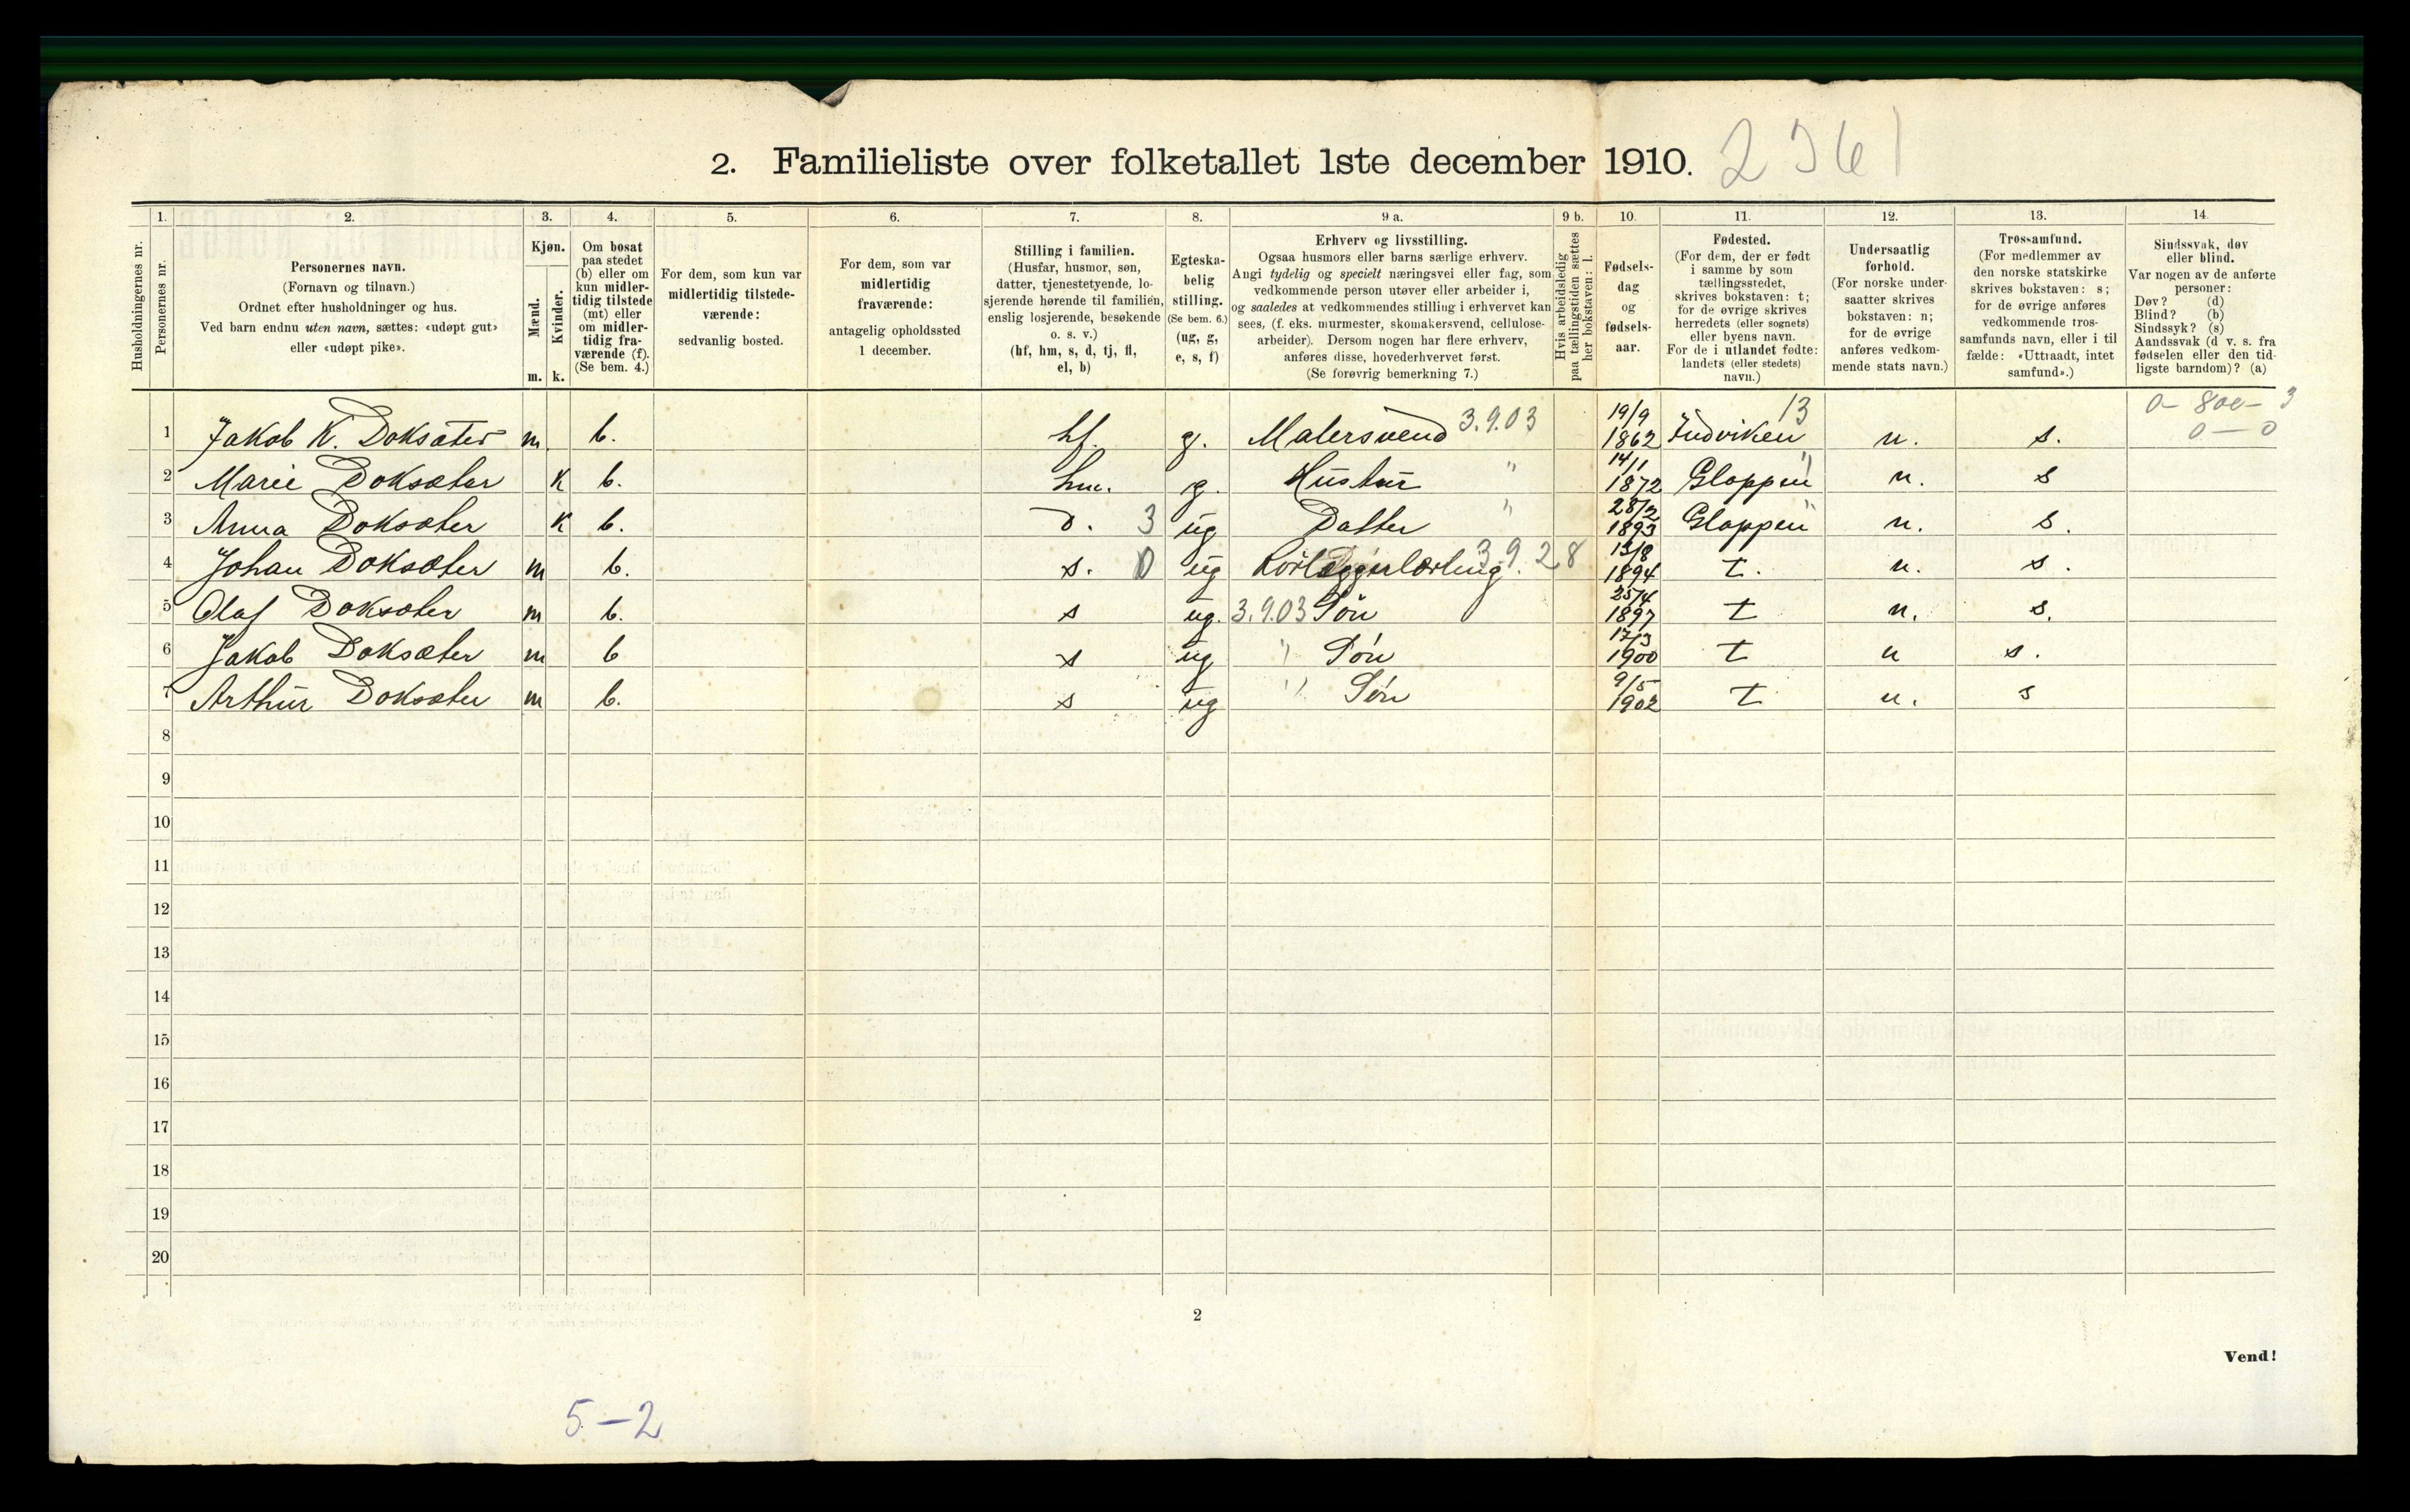 2. Familieliste over folketallet 1ste december 1910. 2361
1. 2. 3. 4. 5. 6. 7. 8. 9 a. 9 b. 10. 11. 12. 13. 14.
Husholdningernes nr.
Personernes nr.
Personernes navn.
(Fornavn og tilnavn.)
Ordnet efter husholdninger og hus.
Ved barn endnu uten navn, sættes: «udøpt gut»
eller «udøpt pike».
Kjøn.
Mænd.
Kvinder.
m. k.
Om bosat
paa stedet
(b) eller om
kun midler-
tidig tilstede
(mt) eller
om midler-
tidig fra-
værende (f).
(Se bem. 4.)
For dem, som kun var
midlertidig tilstede-
værende:
sedvanlig bosted.
For dem, som var
midlertidig
fraværende:
antagelig opholdssted
1 december.
Stilling i familien.
(Husfar, husmor, søn,
datter, tjenestetyende, lo-
sjerende hørende til familien,
enslig losjerende, besøkende
o. s. v.)
(hf, hm, s, d, tj, fl,
el, b)
Egteska-
belig
stilling.
(Se bem. 6.)
(ug, g,
e, s, f)
Erhverv og livsstilling.
Ogsaa husmors eller barns særlige erhverv.
Angi tydelig og specielt næringsvei eller fag, som
vedkommende person utøver eller arbeider i,
og saaledes at vedkommendes stilling i erhvervet kan
sees, (f. eks. murmester, skomakersvend, cellulose-
arbeider). Dersom nogen har flere erhverv,
anføres disse, hovederhvervet først.
(Se forøvrig bemerkning 7.)
Hvis arbeidsledig
paa tællingstiden sættes
her bokstaven: l.
Fødsels-
dag
og
fødsels-
aar.
Fødested.
(For dem, der er født
i samme by som
tællingsstedet,
skrives bokstaven: t;
for de øvrige skrives
herredets (eller sognets)
eller byens navn.
For de i utlandet fødte:
landets (eller stedets)
navn.)
Undersaatlig
forhold.
(For norske under-
saatter skrives
bokstaven: n;
for de øvrige
anføres vedkom-
mende stats navn.)
Trossamfund.
(For medlemmer av
den norske statskirke
skrives bokstaven: s;
for de øvrige anføres
vedkommende tros-
samfunds navn, eller i til
fælde: «Uttraadt, intet
samfund».)
Sindssvak, døv
eller blind.
Var nogen av de anførte
personer:
Døv? (d)
Blind? (b)
Sindssyk? (s)
Aandssvak (d v. s. fra
fødselen eller den tid-
ligste barndom)? (a)
1 Jakob K. Doksæter m. b. hf. g. Malersvend 3.9.03 19/9 1862 Indviken 13 n. s. 0 - 800 - 3
0 - 0
2 Marie Doksæter K b. hm. g. Hustru " 14/1 1872 Gloppen " n. s
3 Anna Doksæter K b. D. 3 ug Datter " 28/2 1893 Gloppen " n. s.
4 Johan Doksæter m b. s. 0 ug 3 9 28 13/8 1894 t. n. s.
5 Olaf Doksæter m b. s ug. 3.9.03 Søn 25/4 1897 t n. s.
6 Jakob Doksæter m b s ug " Søn 17/3 1900 t n s.
7 Arthur Doksæter m b. s ug " Søn 9/5 1902 t n. s
8
9
10
11
12
13
14
15
16
17
18
19
20
2
Vend!
5-2